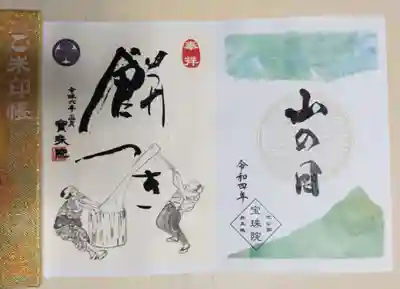 ご朱印帳
奉拝
餅つき
令和六年
寶珠院
山の日
令和四年
宝珠院